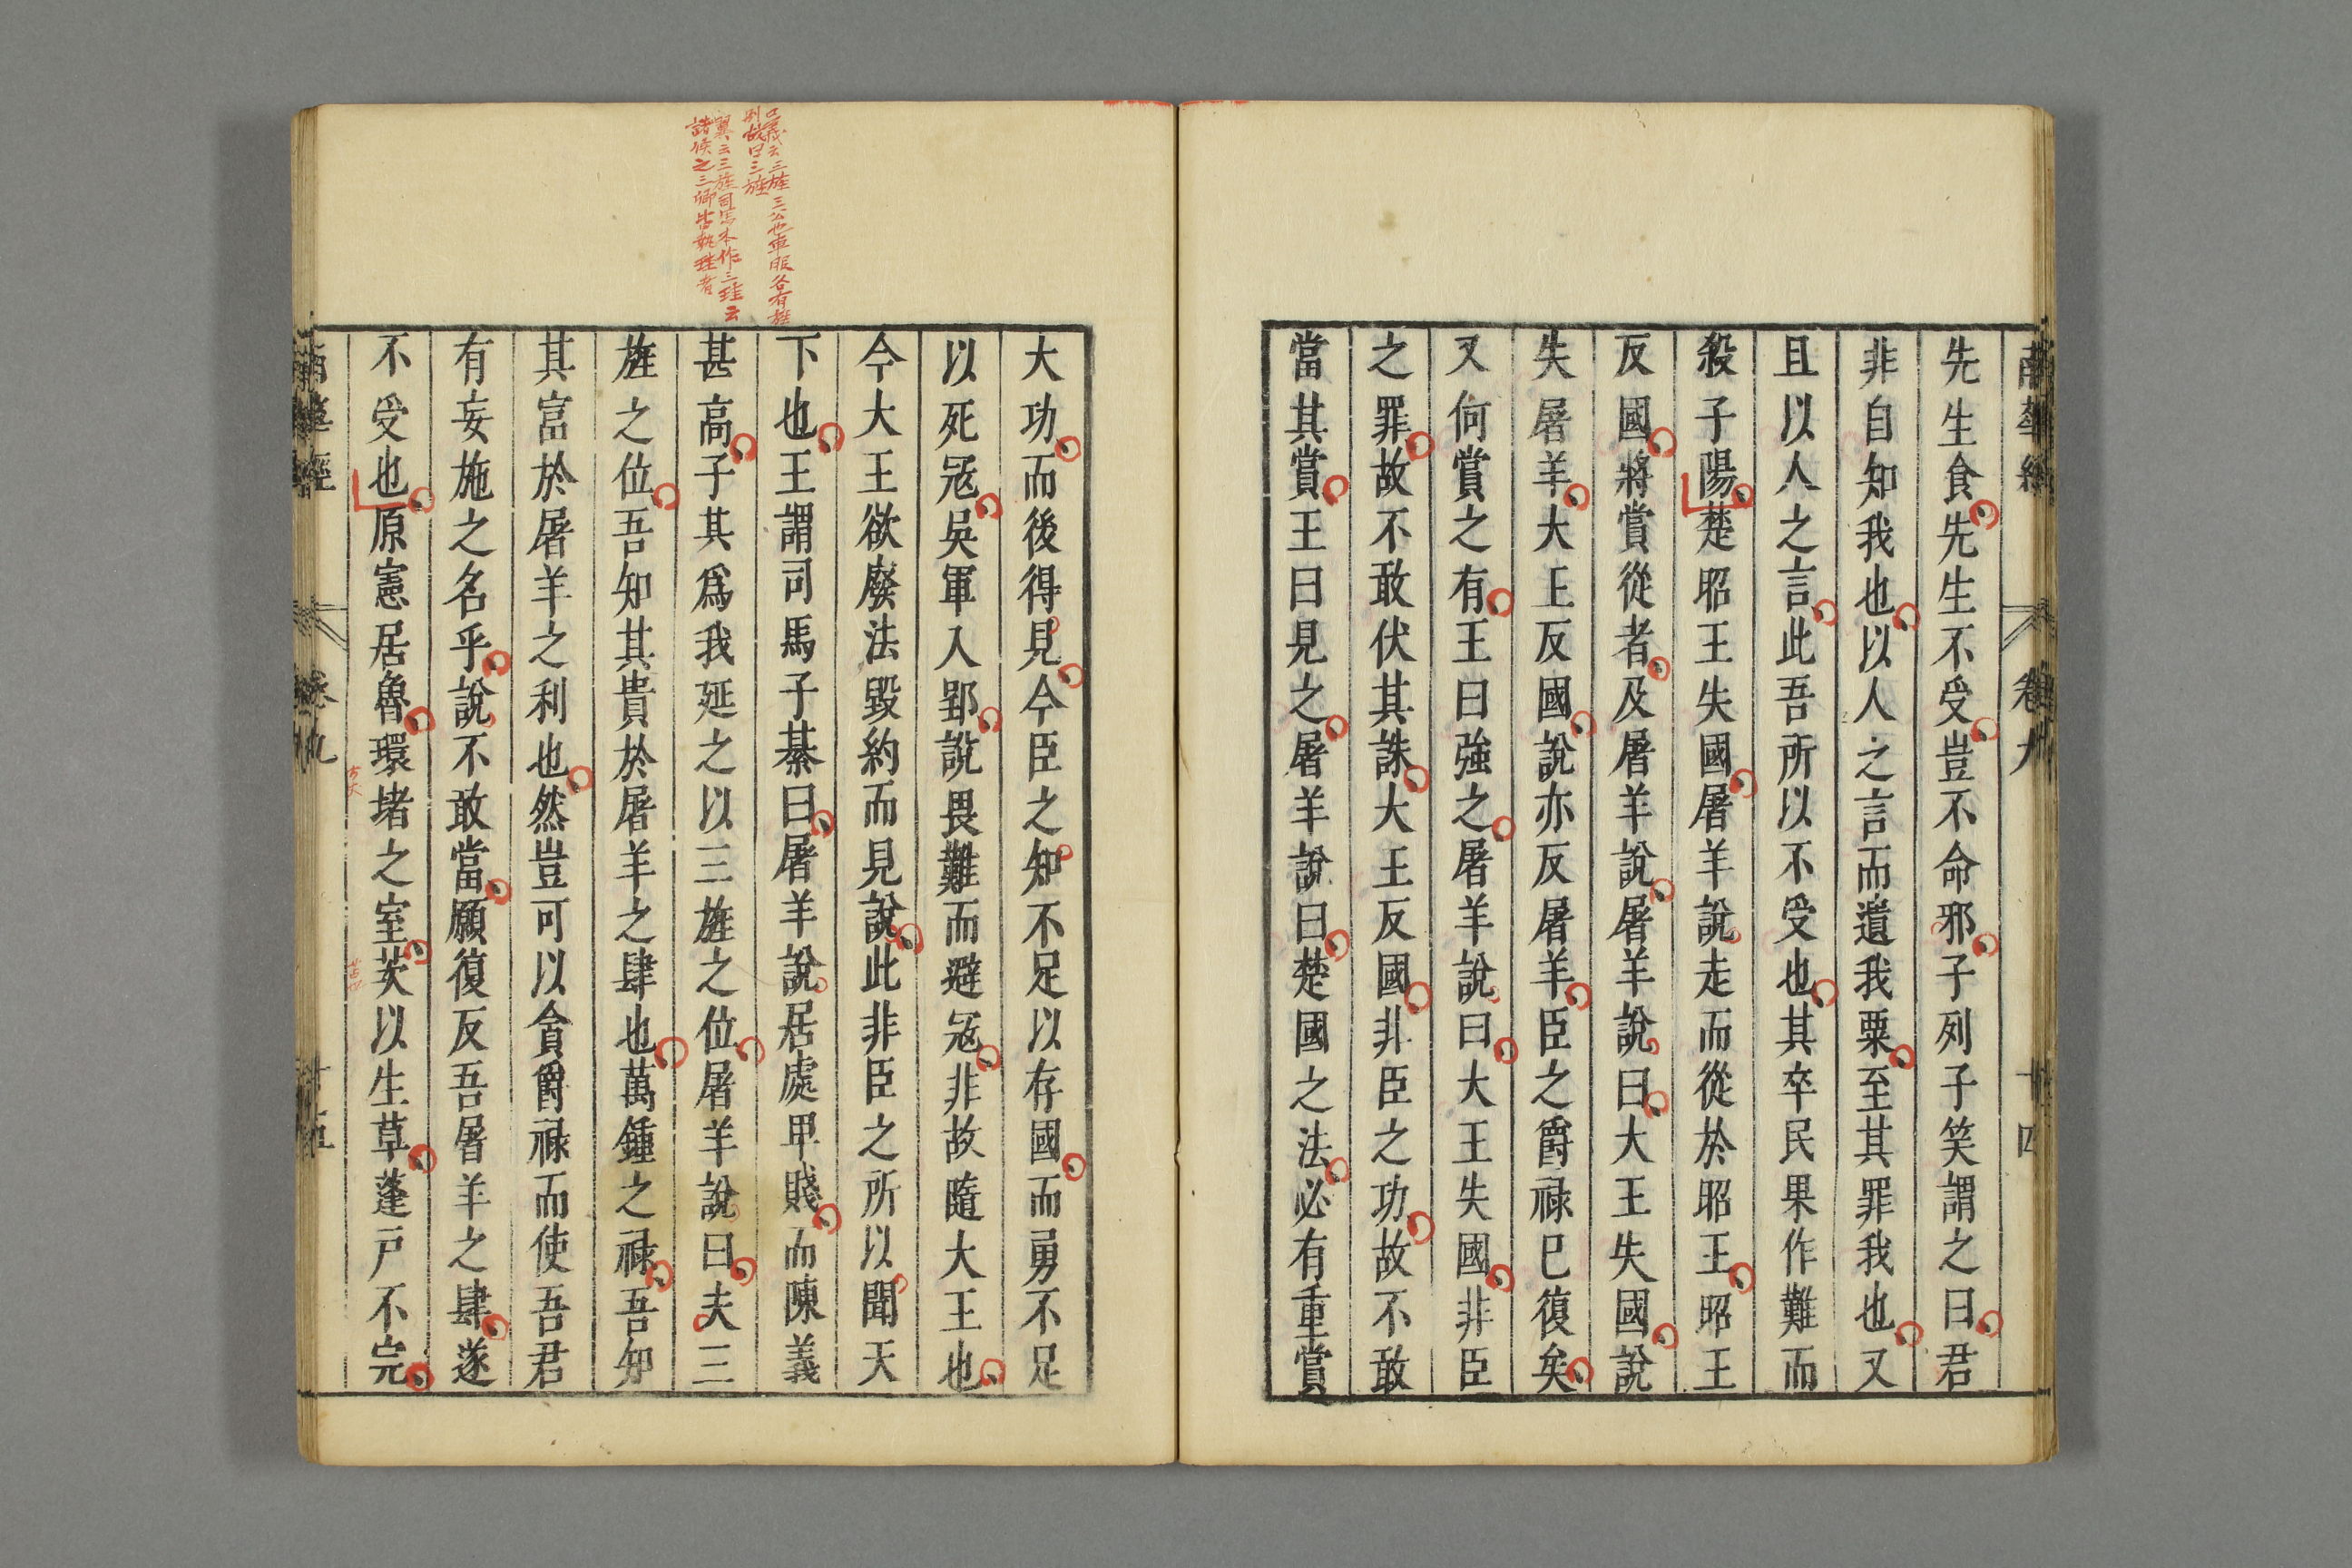 南華經 卷九 十四
先生食先生不受豈不命邪子列子笑謂之曰君
非自知我也以人之言而遺我粟至其罪我也又
且以人之言此吾所以不受也其卒民果作難而
殺子陽楚昭王失國屠羊說走而從於昭王昭王
反國將賞從者及屠羊說屠羊說曰大王失國說
失屠羊大王反國說亦反屠羊臣之爵祿已復矣
又何賞之有王曰強之屠羊說曰大王失國非臣
之罪故不敢伏其誅大王反國非臣之功故不敢
當其賞王曰見之屠羊說曰楚國之法必有重賞
大功而後得見今臣之知不足以存國而勇不足
以死冦吳軍入郢說畏難而避冦非故隨大王也
今大王欲廢法毀約而見說此非臣之所以聞天
下也王謂司馬子綦曰屠羊說居處甲賤而陳義
甚高子其爲我延之以三旌之位屠羊說曰夫三
旌之位吾知其貴於屠羊之肆也萬鍾之祿吾知
其富於屠羊之利也然豈可以貪爵祿而使吾君
有妄施之名乎說不敢當願復反吾屠羊之肆遂
不受也原憲居魯環堵之室茨以生草蓬戸不完
南華經 卷九 十五
口義云三旌三公也車服各有旌
別故曰三旌
翼云三旌司馬本作三珪云
諸侯之三卿皆執珪者